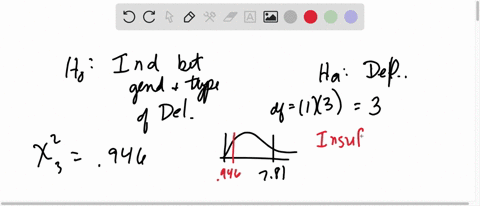 H₀: Ind bet
gend + type
of Del.
Ha: Dep..
df = (1)(3) = 3
χ²₃ = .946
.946 7.81
Insuf